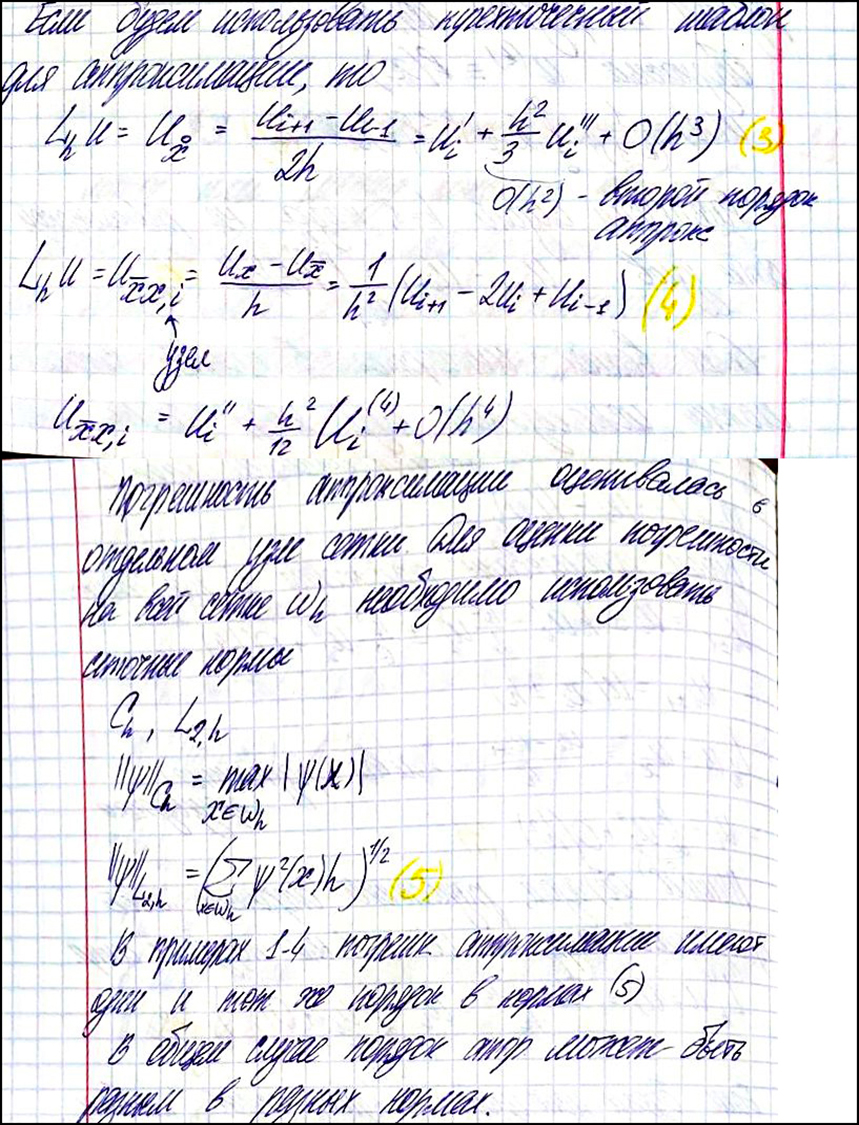 Если будем использовать трехточечный шаблон
для аппроксимации, то
L_h u = u_{x̊} = (u_{i+1} - u_{i-1}) / 2h = u_i' + h²/3 u_i''' + O(h³) (3)
O(h²) - второй порядок
аппрокс
L_h u = u_{x̄x,i} = (u_x - u_{x̄}) / h = 1/h² (u_{i+1} - 2u_i + u_{i-1}) (4)
узел
u_{x̄x,i} = u_i'' + h²/12 u_i^{(4)} + O(h⁴)
Погрешность аппроксимации оценивалась в
отдельном узле сетки. Для оценки погрешности
на всей сетке ω_h необходимо использовать
сеточные нормы
C_h, L_{2,h}
||ψ||_{C_h} = max_{x∈ω_h} |ψ(x)|
||ψ||_{L_{2,h}} = (∑_{x∈ω_h} ψ²(x)h)^{1/2} (5)
В примерах 1-4 погрешн. аппроксимации имеют
один и тот же порядок в нормах (5)
В общем случае порядок аппр может быть
разным в разных нормах.